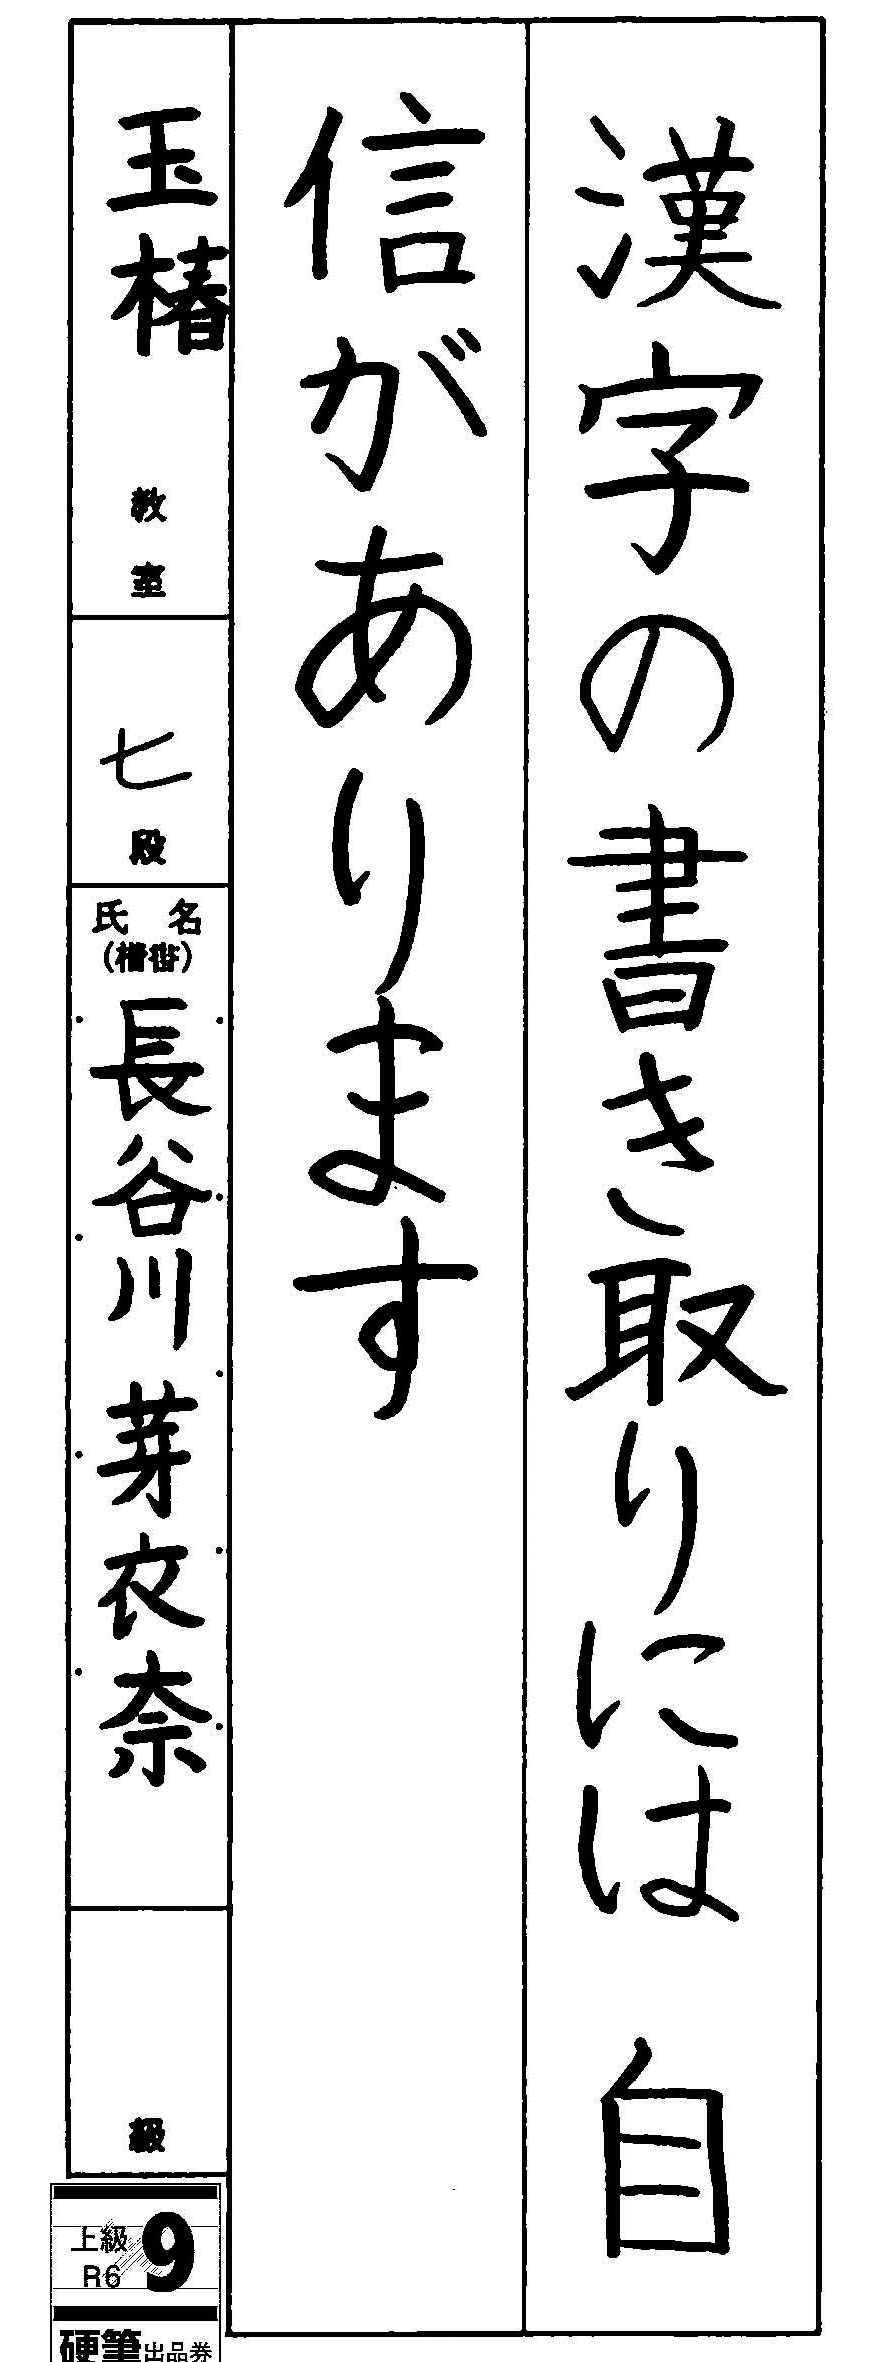 漢字の書き取りには自
信があります
玉椿教室
七段
氏名
(楷書)
長谷川芽衣奈
級
上級
R6
9
硬筆出品券